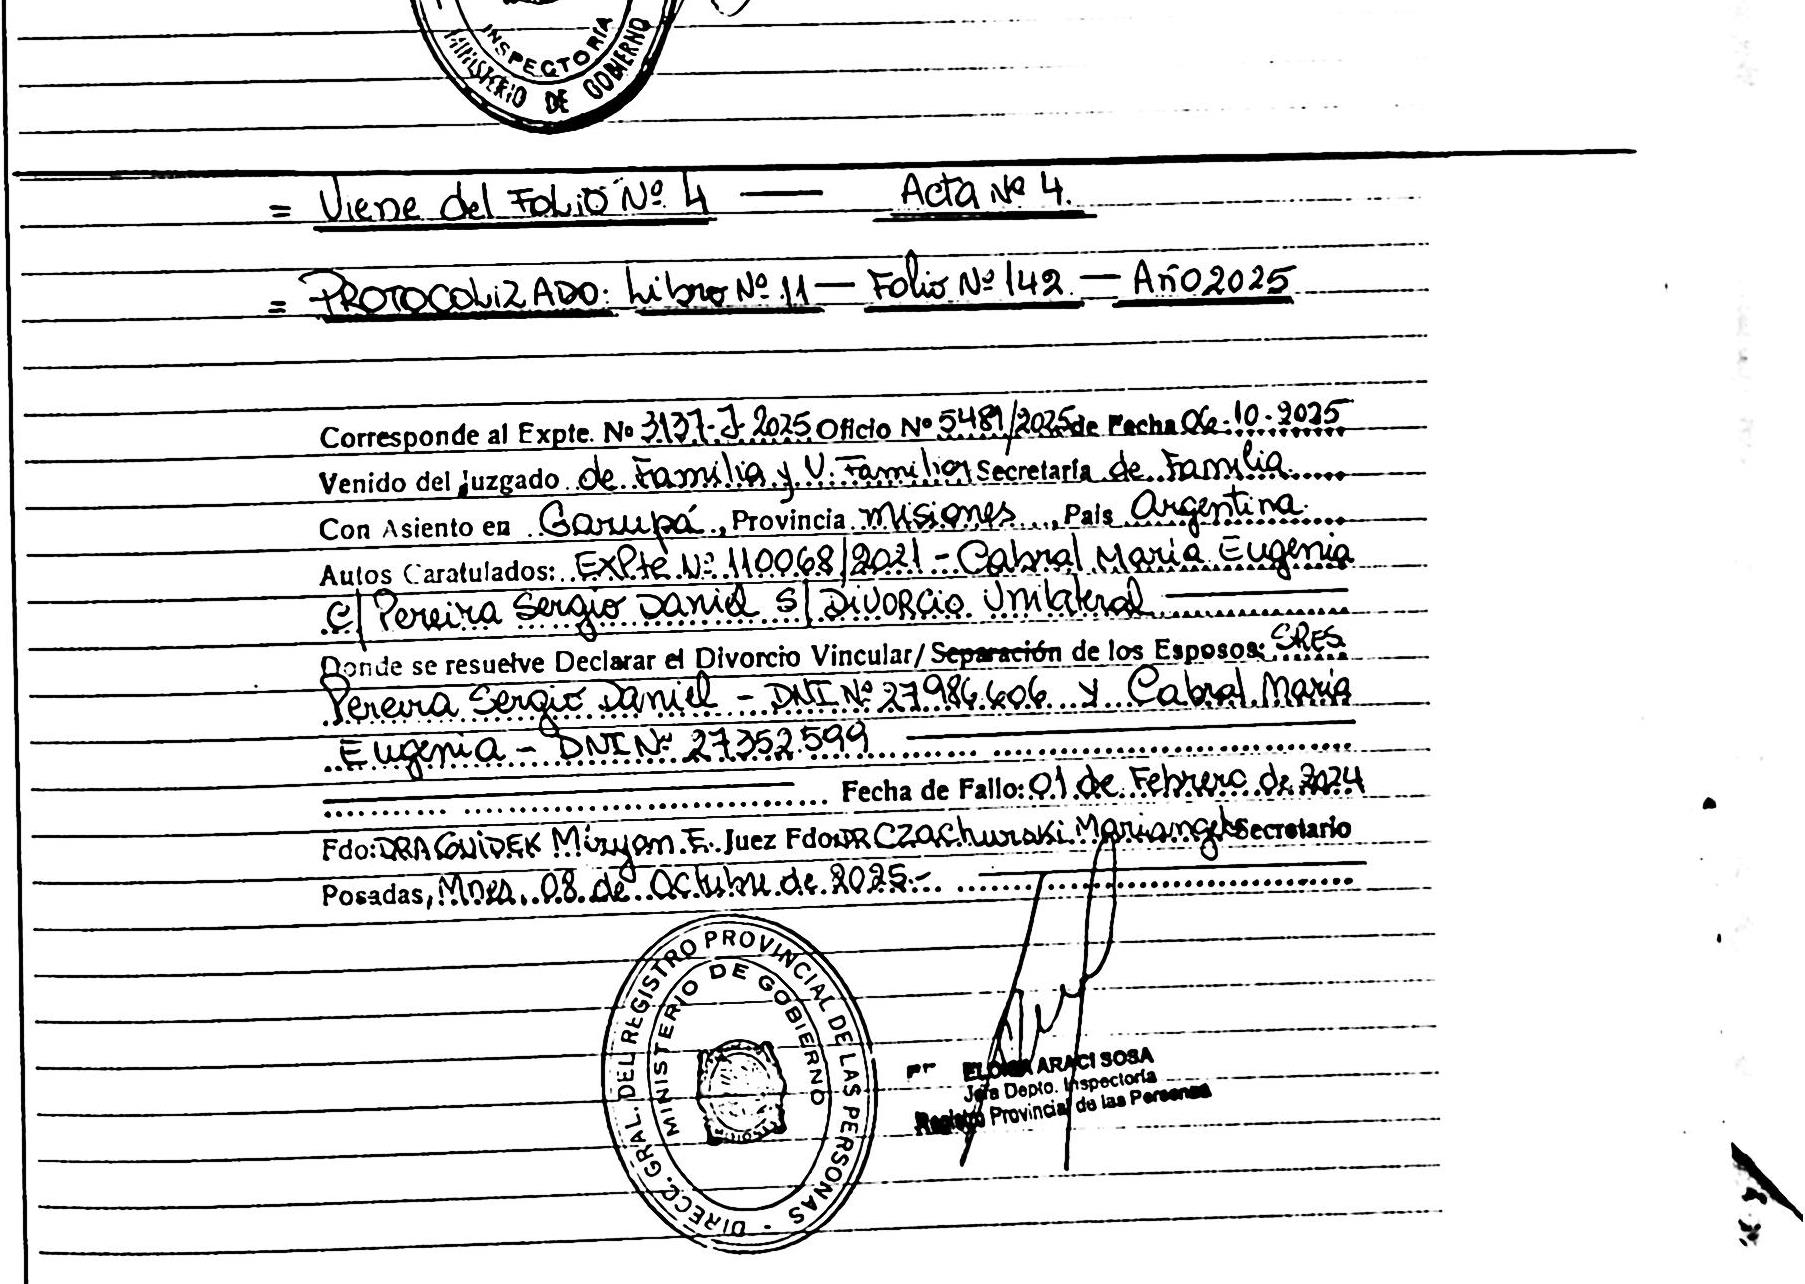 INSPECTORIA
MINISTERIO DE GOBIERNO
= Viene del Folio Nº 4 — Acta Nº 4.
= PROTOCOLIZADO: Libro Nº 11 — Folio Nº 142 — Año 2025
Corresponde al Expte. Nº 3137-J-2025 Oficio Nº 5481/2025 de Fecha 06-10-2025
Venido del Juzgado de Familia y V. Familiar Secretaría de Familia
Con Asiento en Garupá, Provincia Misiones, País Argentina
Autos Caratulados: EXPte Nº 110068/2021 - Cabral Maria Eugenia
C/ Pereira Sergio Daniel S/ DIVORCIO Unilateral
Donde se resuelve Declarar el Divorcio Vincular/Separación de los Esposos: SRES
Pereira Sergio Daniel - DNI Nº 27986.606 y Cabral Maria
Eugenia - DNI Nº 27352.599
Fecha de Fallo: 01 de Febrero de 2024
Fdo: DRA GUIDEK Miryam E. Juez Fdo DR Czachurski Mariangel Secretario
Posadas, Mnes, 08 de Octubre de 2025.-
DIRECC. GRAL. DEL REGISTRO PROVINCIAL DE LAS PERSONAS -
MINISTERIO DE GOBIERNO
ARACI SOSA
Jefa Depto. Inspectoría
Registro Provincial de las Personas